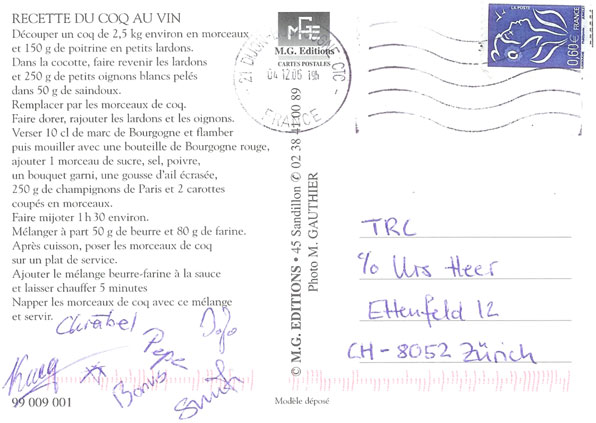 RECETTE DU COQ AU VIN
Découper un coq de 2,5 kg environ en morceaux
et 150 g de poitrine en petits lardons.
Dans la cocotte, faire revenir les lardons
et 250 g de petits oignons blancs pelés
dans 50 g de saindoux.
Remplacer par les morceaux de coq.
Faire dorer, rajouter les lardons et les oignons.
Verser 10 cl de marc de Bourgogne et flamber
puis mouiller avec une bouteille de Bourgogne rouge,
ajouter 1 morceau de sucre, sel, poivre,
un bouquet garni, une gousse d'ail écrasée,
250 g de champignons de Paris et 2 carottes
coupés en morceaux.
Faire mijoter 1 h 30 environ.
Mélanger à part 50 g de beurre et 80 g de farine.
Après cuisson, poser les morceaux de coq
sur un plat de service.
Ajouter le mélange beurre-farine à la sauce
et laisser chauffer 5 minutes
Napper les morceaux de coq avec ce mélange
et servir.
Chräbel
JoJo
Pepe
Bonus
99 009 001
MGE
M.G. Editions
CARTES POSTALES
© M.G. EDITIONS • 45 Sandillon ✆ 02 38 41 00 89
Photo M. GAUTHIER
Modèle déposé
21 DIJON CTC
04 12 06
FRANCE
LA POSTE
0,60€ FRANCE
TRC
c/o Urs Heer
Ettenfeld 12
CH - 8052 Zürich